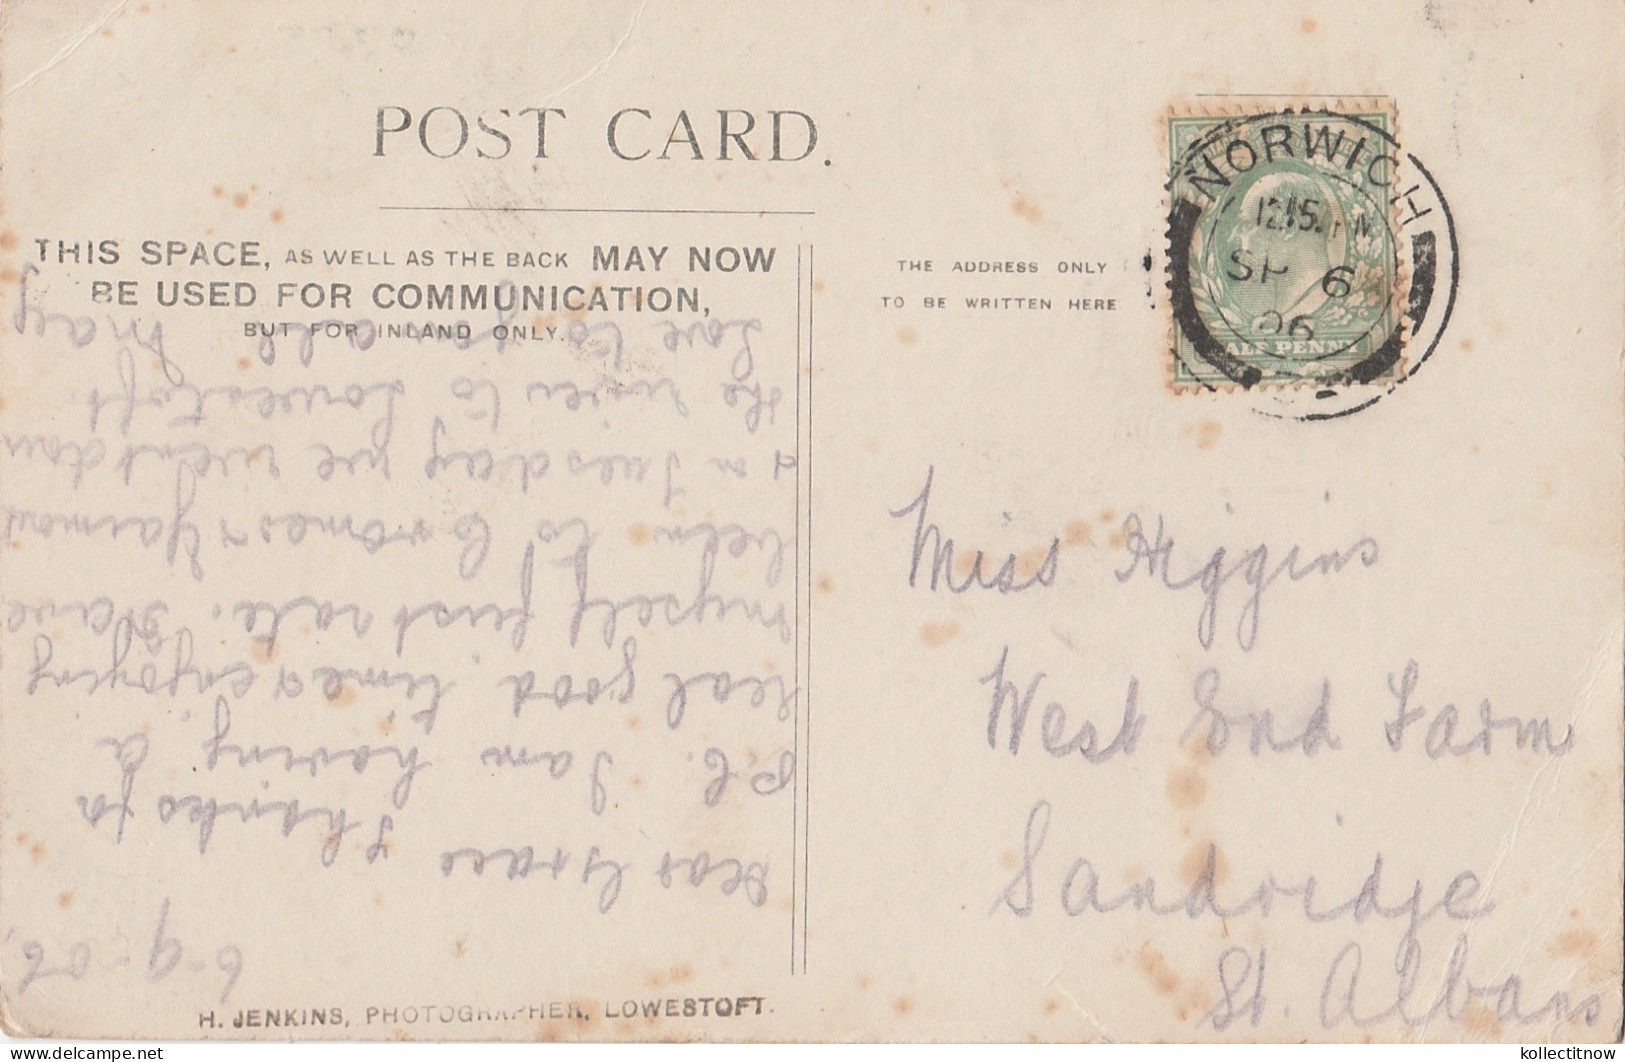 POST CARD.
THIS SPACE, AS WELL AS THE BACK MAY NOW
BE USED FOR COMMUNICATION,
BUT FOR INLAND ONLY.
THE ADDRESS ONLY
TO BE WRITTEN HERE
NORWICH
12.15. PM
SP 6
06
HALF PENNY
6-9-06
Dear Grace Thanks for
P.C. I am having a
real good time & enjoying
myself first rate. Have
been to & Yarmouth
on Tuesday we went down
the river to Lowestoft.
Love to you all May
Miss Higgins
West End Farm
Sandridge
St. Albans
H. JENKINS, PHOTOGRAPHER, LOWESTOFT.
kollectitnow